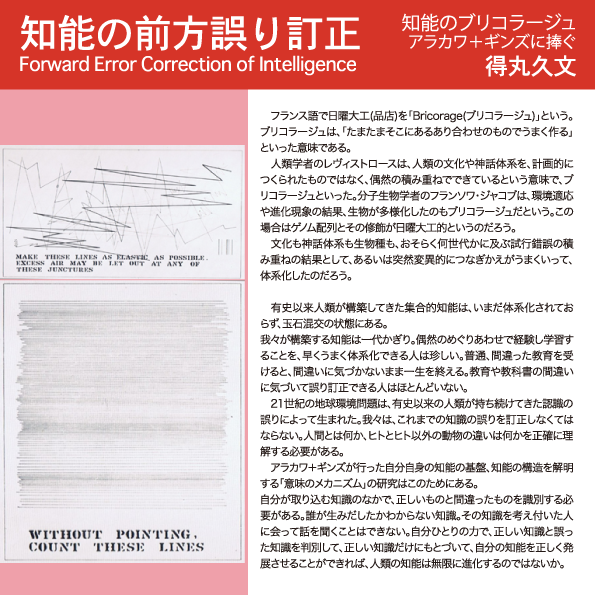 知能の前方誤り訂正
Forward Error Correction of Intelligence
知能のブリコラージュ
アラカワ+ギンズに捧ぐ
得丸久文
MAKE THESE LINES AS ELASTIC AS POSSIBLE.
EXCESS AIR MAY BE LET OUT AT ANY OF
THESE JUNCTURES
WITHOUT POINTING,
COUNT THESE LINES
フランス語で日曜大工(品店)を「Bricorage(ブリコラージュ)」という。
ブリコラージュは、「たまたまそこにあるあり合わせのものでうまく作る」
といった意味である。
人類学者のレヴィストロースは、人類の文化や神話体系を、計画的に
つくられたものではなく、偶然の積み重ねでできているという意味で、ブ
リコラージュといった。分子生物学者のフランソワ・ジャコブは、環境適応
や進化現象の結果、生物が多様化したのもブリコラージュだという。この
場合はゲノム配列とその修飾が日曜大工的というのだろう。
文化も神話体系も生物種も、おそらく何世代かに及ぶ試行錯誤の積
み重ねの結果として、あるいは突然変異的につなぎかえがうまくいって、
体系化したのだろう。
有史以来人類が構築してきた集合的知能は、いまだ体系化されてお
らず、玉石混交の状態にある。
我々が構築する知能は一代かぎり。偶然のめぐりあわせで経験し学習す
ることを、早くうまく体系化できる人は珍しい。普通、間違った教育を受
けると、間違いに気づかないまま一生を終える。教育や教科書の間違い
に気づいて誤り訂正できる人はほとんどいない。
21世紀の地球環境問題は、有史以来の人類が持ち続けてきた認識の
誤りによって生まれた。我々は、これまでの知識の誤りを訂正しなくては
ならない。人間とは何か、ヒトとヒト以外の動物の違いは何かを正確に理
解する必要がある。
アラカワ+ギンズが行った自分自身の知能の基盤、知能の構造を解明
する「意味のメカニズム」の研究はこのためにある。
自分が取り込む知識のなかで、正しいものと間違ったものを識別する必
要がある。誰が生みだしたかわからない知識。その知識を考え付いた人
に会って話を聞くことはできない。自分ひとりの力で、正しい知識と誤っ
た知識を判別して、正しい知識だけにもとづいて、自分の知能を正しく発
展させることができれば、人類の知能は無限に進化するのではないか。